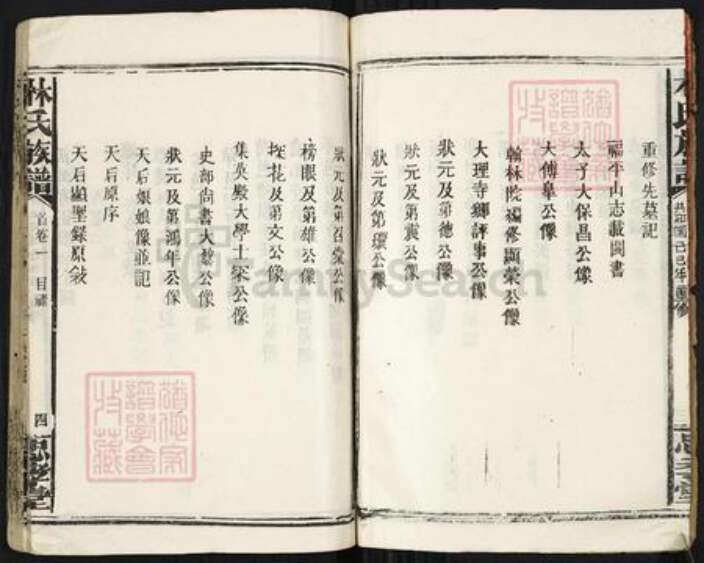 林氏族譜
共和國己巳年重修
思孝堂
重修先墓記
福平山志載閩書
太子大保昌公像
大傅臯公像
翰林院編修顯榮公像
大理寺鄉評事公像
狀元及第德公像
狀元及第震公像
狀元及第環公像
狀元及第召棠公像
榜眼及第雄公像
探花及第文公像
集英殿大學士梁公像
吏部尚書大黻公像
狀元及第鴻年公像
天后娘娘像並記
天后原序
天后顯聖錄原敘
林氏族譜
首卷一 目錄
四
思孝堂
譜學會
特藏
譜學會
特藏
FamilySearch